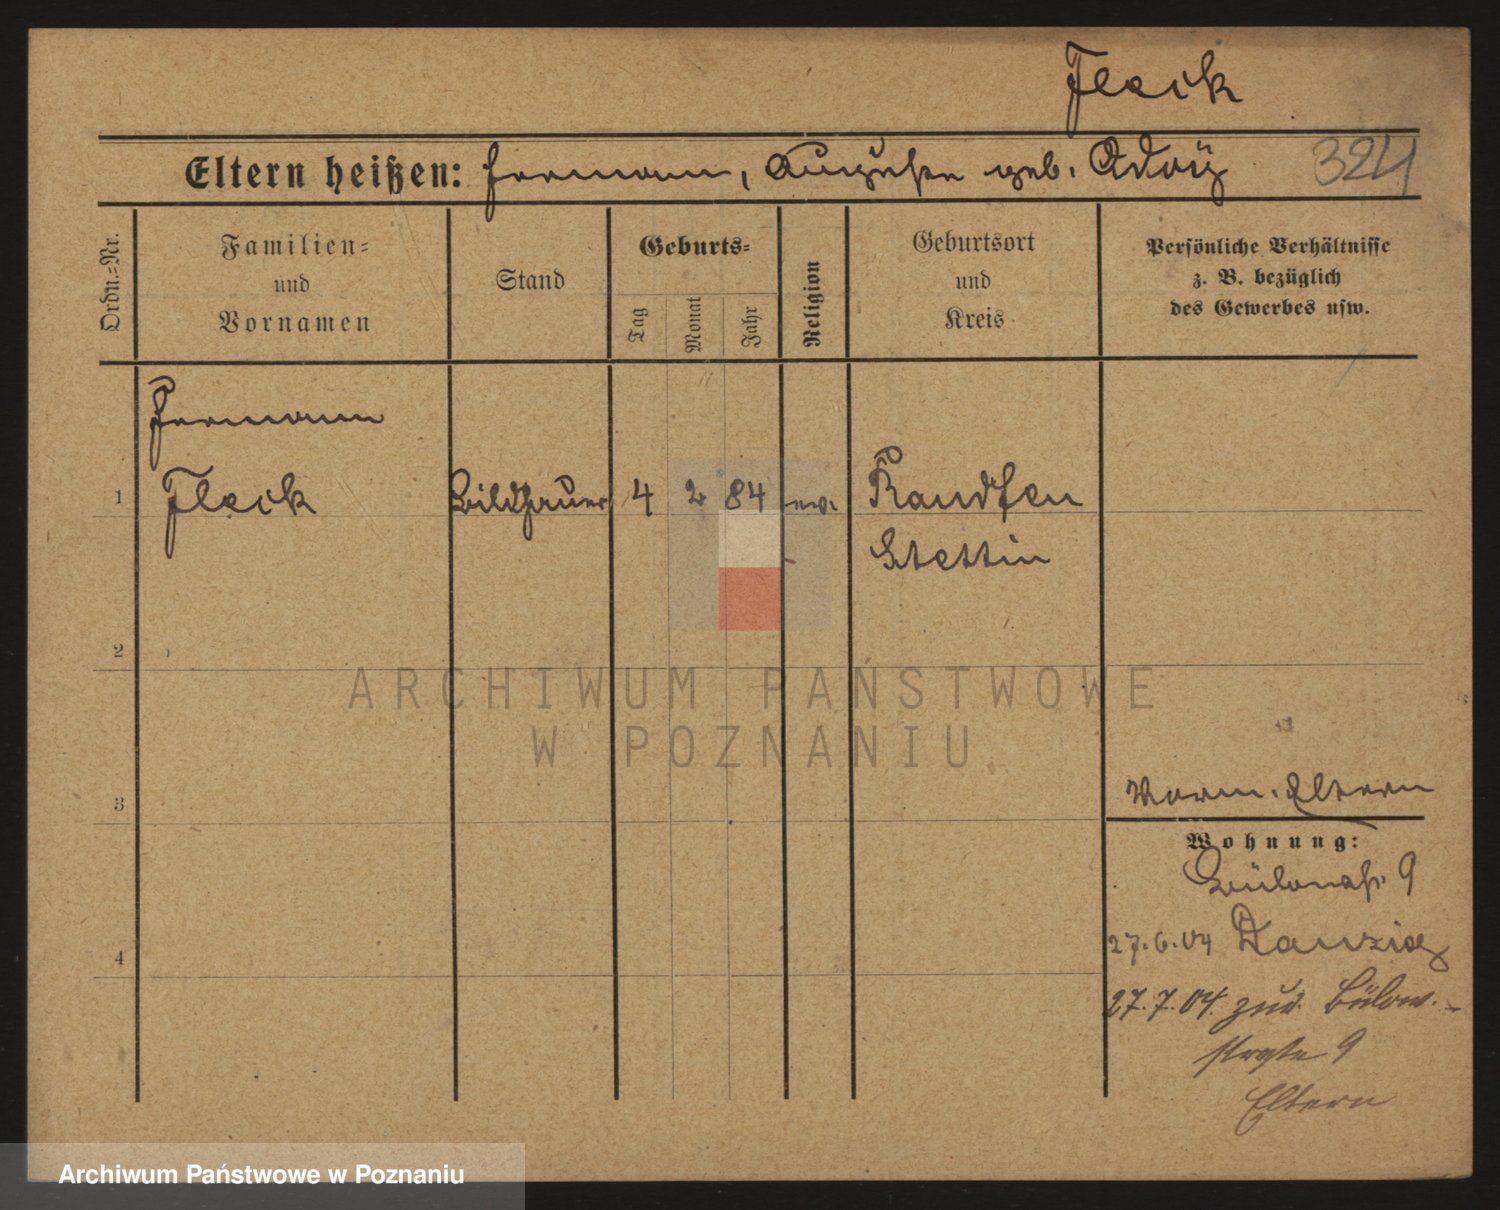 Fleck
Eltern heißen: Hermann, Auguste geb. Adoÿ 324
Ordn.=Nr.
Familien=
und
Vornamen
Stand
Geburts=
Tag
Monat
Jahr
Religion
Geburtsort
und
Kreis
Persönliche Verhältnisse
z. B. bezüglich
des Gewerbes usw.
Hermann
1 Fleck Bildhauer 4 2 84 ev.
Stettin
2
3
Eltern
Wohnung:
Bülowstr. 9
27.6.04 Danzig
27.7.04. zur. Bülow-
straße 9
Eltern
4
ARCHIWUM PAŃSTWOWE
W POZNANIU
Archiwum Państwowe w Poznaniu